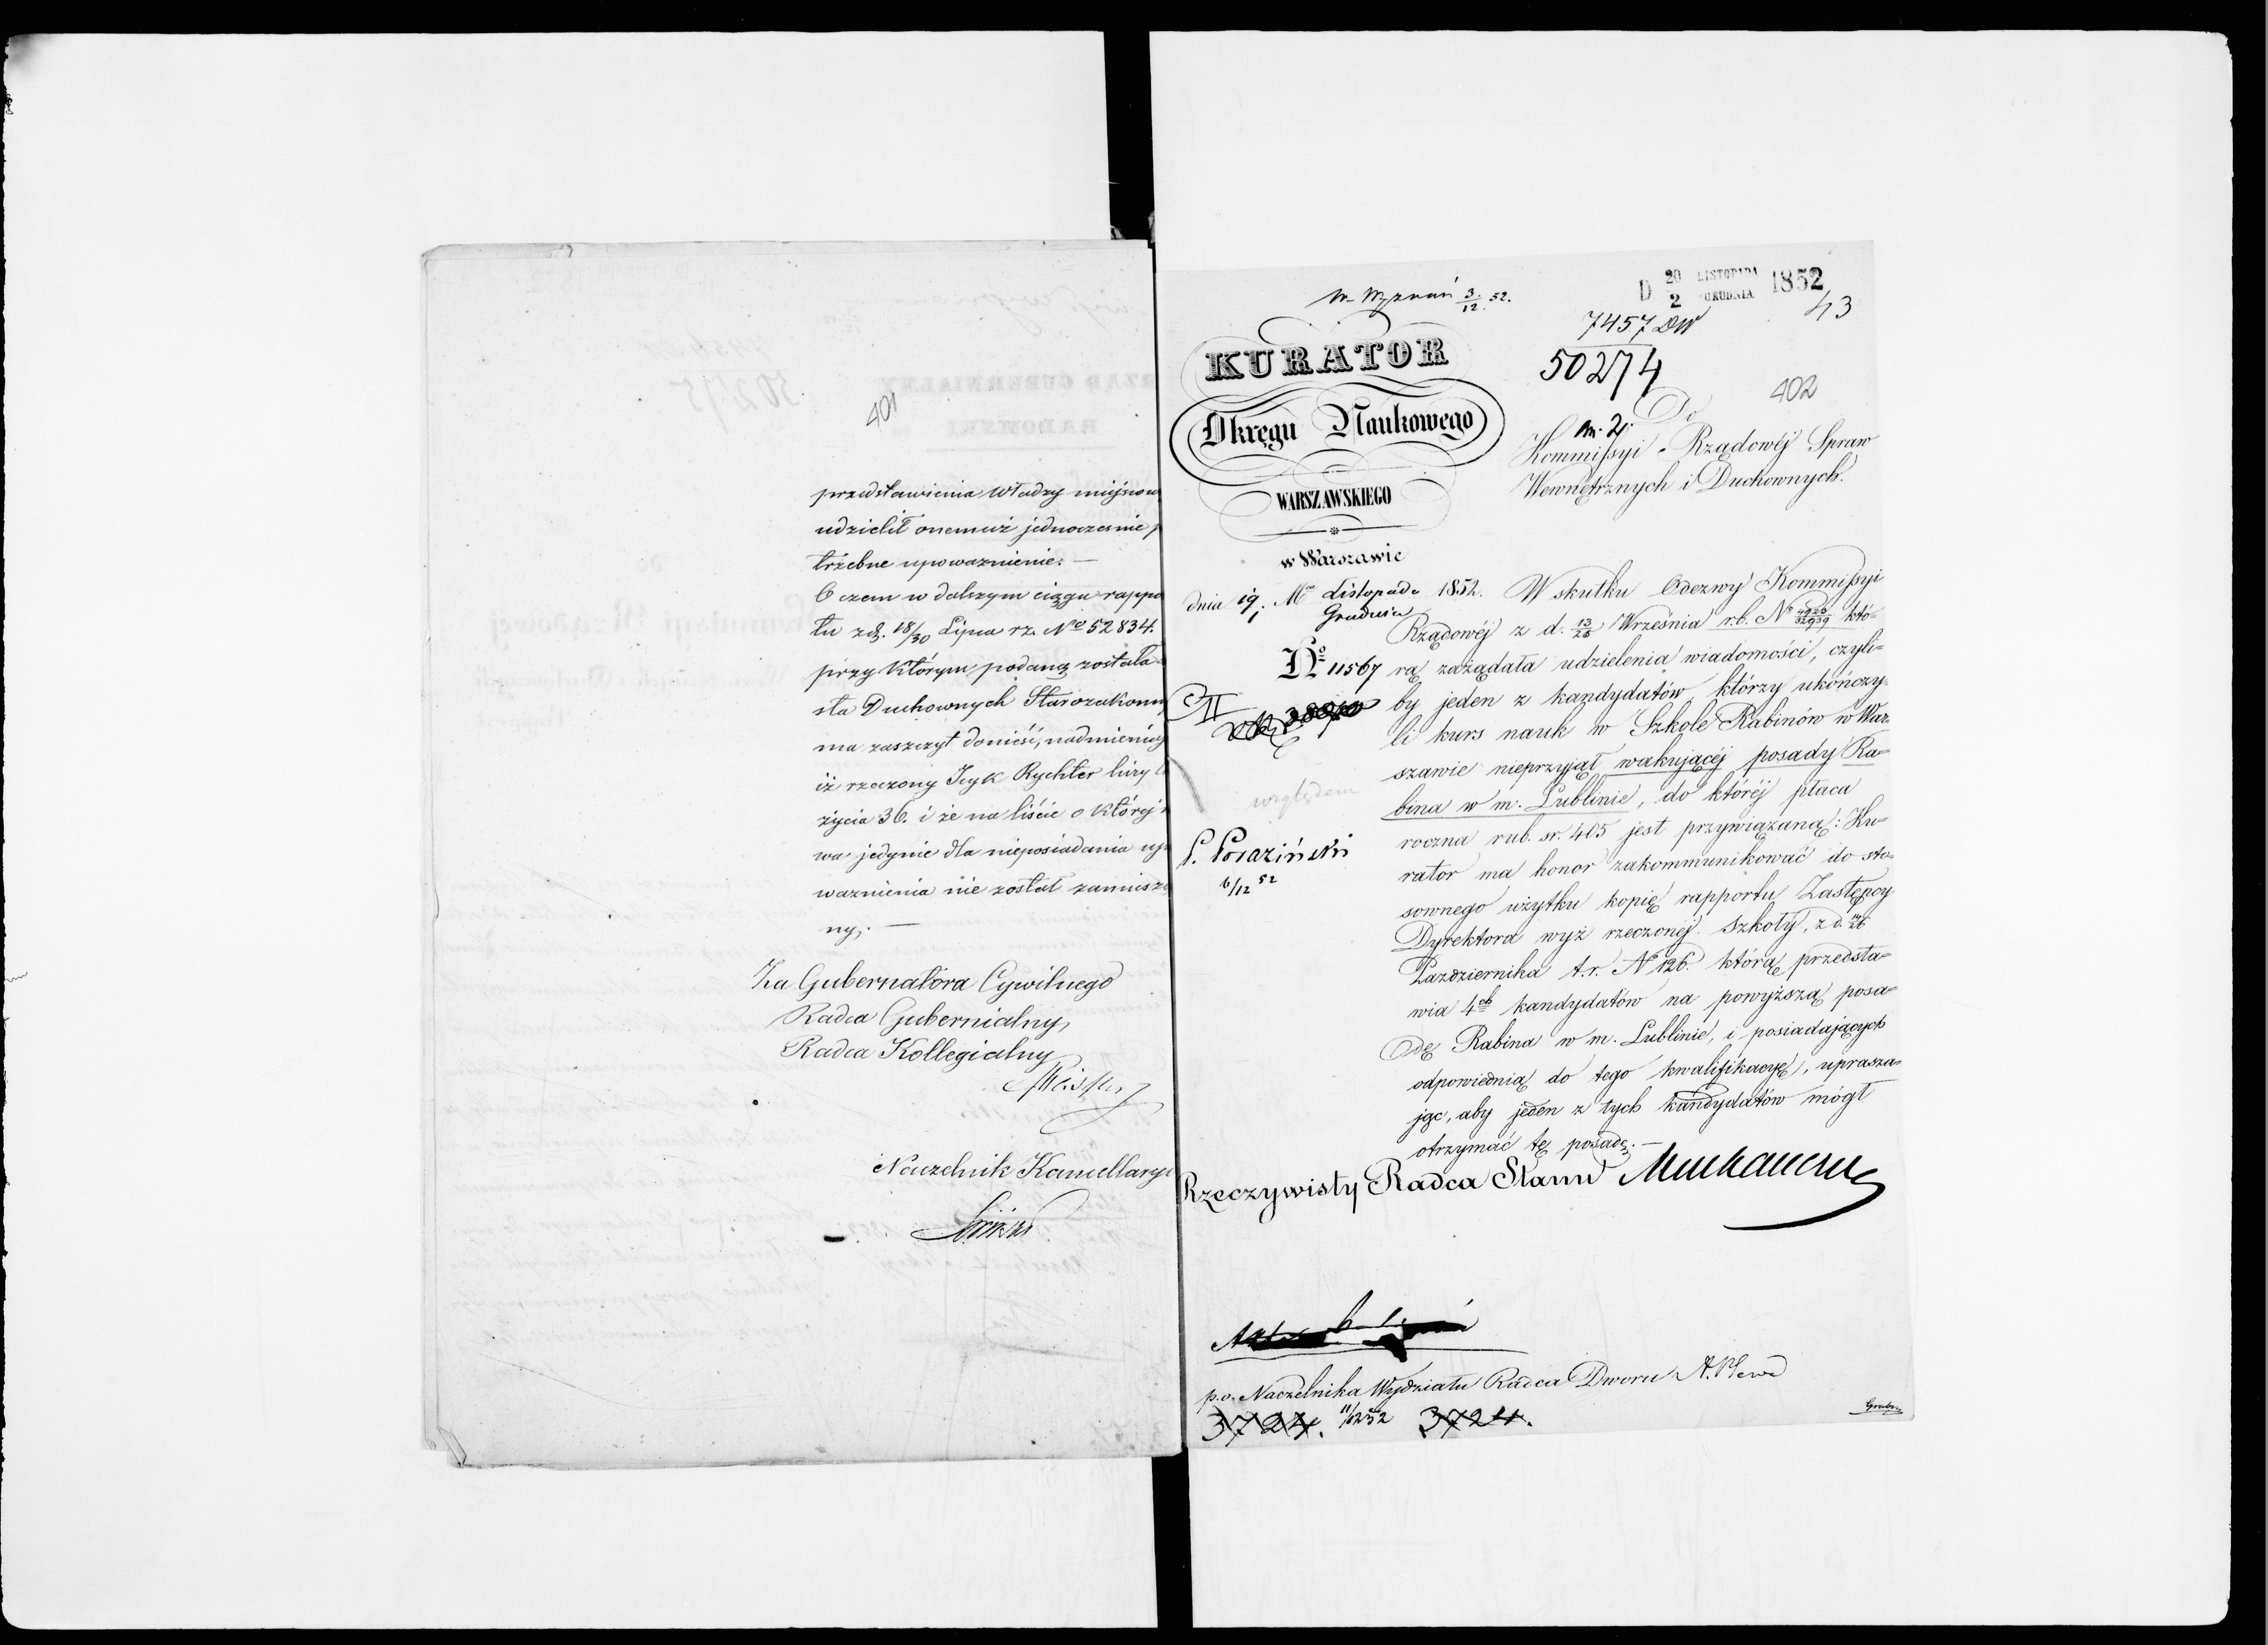 401
przedstawienia Władzy miejscow
udzielił onemuż jednocześnie p
trzebne upoważnienie. —
O czem w dalszym ciągu rappo
tu z d. 18/30 Lipca r.z. No 52834.
przy którym podaną została
sta Duchownych Starozakonn
ma zaszczyt donieść, nadmieniaj
iż rzeczony Icyk Rychter liczy l
życia 36. i że na liście o której
wa jedynie dla nieposiadania up
ważnienia nie został zamieszc
ny. —
Za Gubernatora Cywilnego
Radca Gubernialny,
Radca Kollegialny
Naczelnik Kancellaryi
W. Wyznań 3/12 52.
D 20/2 LISTOPADA GRUDNIA 1852
43
7457 DW
50274
402
KURATOR
Okręgu Naukowego
WARSZAWSKIEGO
w Warszawie
dnia 19/1 Mca Listopada Grudnia 1852.
No 11567
Do
Kommissyi Rządowéj Spraw
Wewnętrznych i Duchownych.
W skutku Odezwy Kommissyi
Rządowéj z d. 13/25 Września r.b. No któ-
rą zażądała udzielenia wiadomości, czyli-
by jeden z kandydatów którzy ukończy-
li kurs nauk w Szkole Rabinów w War-
szawie nieprzyjął wakującéj posady Ra-
bina w m. Lublinie, do któréj płaca
roczna rub. sr. 405 jest przywiązaną: Ku-
rator ma honor zakommunikować do sto-
sownego użytku kopię rapportu Zastępcy
Dyrektora wyż rzeczonéj Szkoły, z d. 14/26
Października t.r. No 126. którą przedsta-
wia 4ch kandydatów na powyższą posa-
dę Rabina w m. Lublinie, i posiadających
odpowiednią do tego kwalifikacyę, uprasza-
jąc, aby jeden z tych kandydatów mógł
otrzymać tę posadę. —
względem
6/12 52
Rzeczywisty Radca Stanu Muchanow
p.o. Naczelnika Wydziału Radca Dworu
3724. 3724.